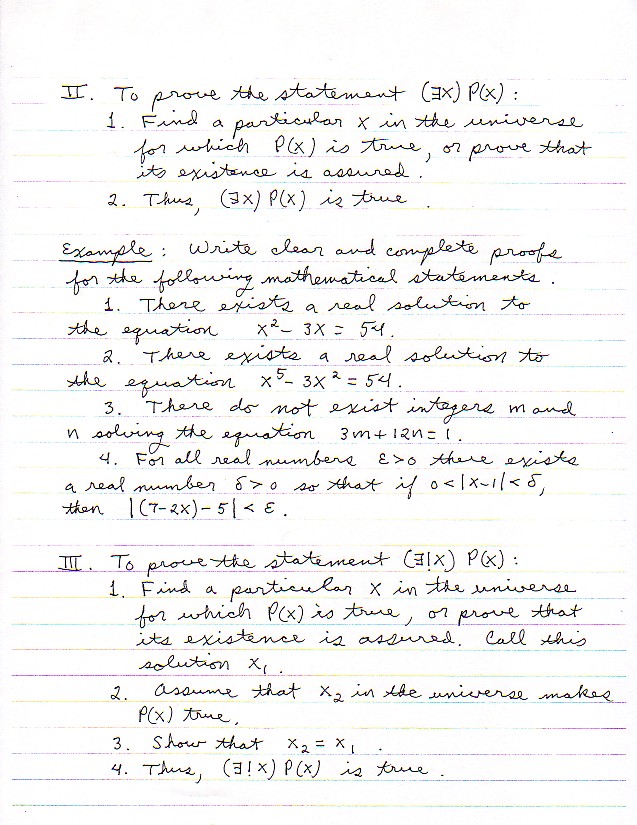 II. To prove the statement (∃x) P(x) :
1. Find a particular x in the universe
for which P(x) is true, or prove that
its existence is assured.
2. Thus, (∃x) P(x) is true .
Example : Write clear and complete proofs
for the following mathematical statements .
1. There exists a real solution to
the equation x² - 3x = 54.
2. There exists a real solution to
the equation x⁵ - 3x² = 54.
3. There do not exist integers m and
n solving the equation 3m + 12n = 1.
4. For all real numbers ε>0 there exists
a real number δ>0 so that if 0<|x-1|<δ,
then |(7-2x)-5| < ε.
III. To prove the statement (∃!x) P(x) :
1. Find a particular x in the universe
for which P(x) is true, or prove that
its existence is assured. Call this
solution x₁.
2. Assume that x₂ in the universe makes
P(x) true.
3. Show that x₂ = x₁ .
4. Thus, (∃!x) P(x) is true .